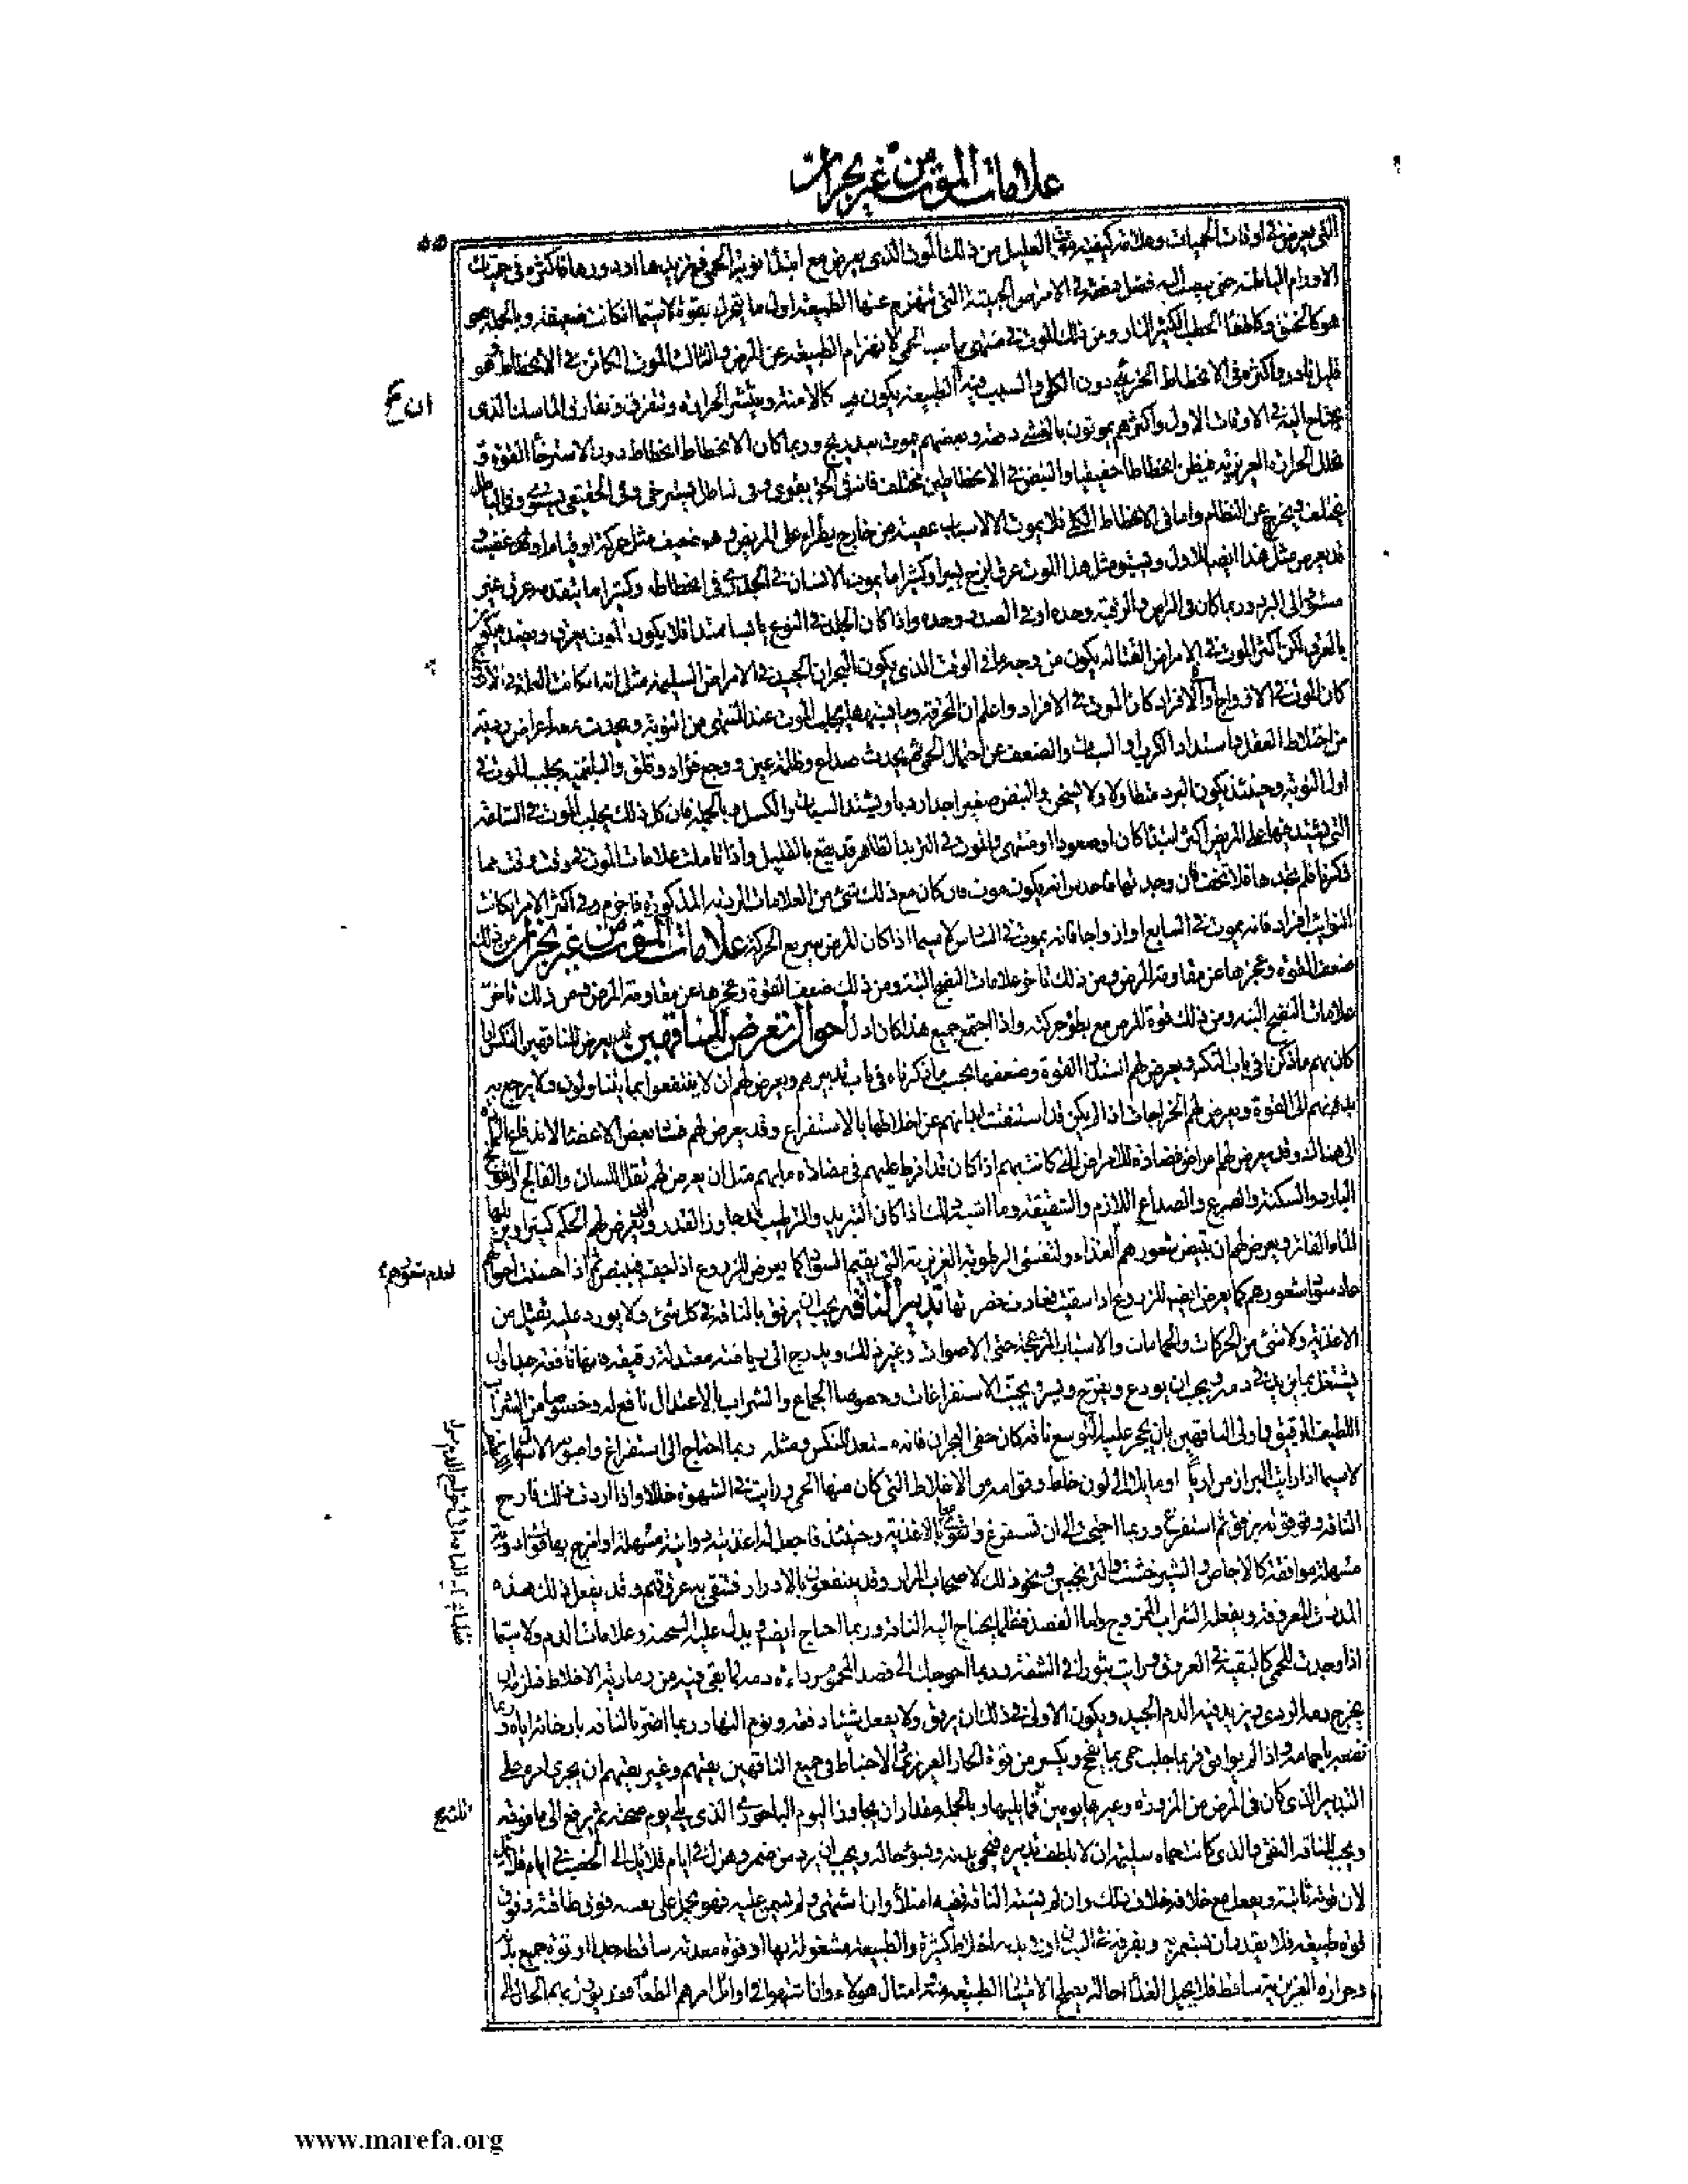 علامات الموت من غير بحران
التى يعرض فى اوقات الحميات وهلاكه كيفية موت العليل من ذلك الموت الذى يعرض مع ابتداء نوبة الحمى فى تزيدها او دورها فاكثره فى حميات
الاورام الباطنة حين ينصب اليه فضل دفعة فى الامراض الخبيثة التى تنهزم عنها الطبيعة اول ما يتحرك بقوة لا سيما ان كانت ضعيفة وبالجملة
هو كالخنق وكاطفاء الحطب الكثير النار ومن ذلك الموت فى منتهى الحمى لانهزام الطبيعة عن المرض والثالث الموت الكائن فى الانحطاط وهو
قليل نادر واكثره فى الانحطاط الجزئى دون الكلى والسبب فيه ان الطبيعة يكون كالامنة وينتشر الحرارة وتتفرق وتفارق الماسك الذى
ان ع
يحتاج اليه فى الاوقات الاول واكثرهم يموتون بالغشى دفعة وبعضهم يموت بتدريج وربما كان الانحطاط انحطاطا دون الاسترخاء القوة و
تحلل الحرارة الغريزية فيظن انحطاطا حقيقيا والنبض فى الانحطاطين مختلف فانه فى الحق يقوى وفى الباطل يسترخى وفى الحقيقى يستوى وفى الباطل
يختلف ويخرج عن النظام واما فى الانحطاط الكلى فلا يموت الا لاسباب عصية من خارج يطراء على المريض وهو ضعيف مثل حركة او قيام او غضب و
قد يعرض مثل هذا ايضا للاول ويسبق مثل هذا الموت عرق لزج يسير وكثيرا ما يموت الانسان فى الجدرى فى انحطاطه وكثيرا ما يتقدمه عرق غير
مستو الى البرد وربما كان فى الراس والرقبة وحده او فى الصدر وحده واذا كان الجلد فى النوع يابسا ممتدا فلا يكون الموت بعرق
بالعرق لكن اكثر الموت فى الامراض القتالة يكون من وجه ما فى الوقت الذى يكون البحران الجيد فى الامراض السليمة مثل انه اذا كانت العلة فى الازواج
كان الموت فى الازواج او الافراد كان الموت فى الافراد واعلم ان المحرقة وما يشبهها يجلب الموت عند المنتهى من النوبة ويحدث معه اعراض ردية
من اختلاط العقل واشتداد الكرب او السبات والضعف عن احتمال الحمى ثم يحدث صداع وظلمة عين ووجع فؤاد وقلق والبلغمية يجلب الموت فى
اول النوبة وحينئذ يكون البرد متطاولا ولا يسخن والنبض صغيرا جدا رديا ويشتد السبات والكسل وبالجملة فان كل ذلك يجلب الموت فى الساعة
التى يشتد فيها على المريض اكثر ابتداء كان او صعودا او منتهى والموت فى التزيد الظاهر قد يقع بالقليل واذا تاملت علامات الموت فى وقت وقت مما
ذكرنا فلم تجدها فلا تخف فان وجدتها فاحدس انه يكون موت فان كان مع ذلك شئ من العلامات الردية المذكورة فاجزم وفى اكثر الامر ان كانت
النوائب افرادا فانه يموت فى السابع او ازواجا فانه يموت فى السادس لا سيما اذا كان المرض سريع الحركة علامات الموت من غير بحران من ذلك
ضعف القوة وعجزها عن مقاومة المرض ومن ذلك تاخر علامات النضج البتة ومن ذلك ضعف القوة وعجزها عن مقاومة المرض ومن ذلك تاخر
علامات النضج البتة ومن ذلك قوة المرض مع بطؤ حركته واذا اجتمع جميع هذا كان ادل احوال تعرض للناقهين قد يعرض للناقهين النكس ان
كان بهم ما ذكرنا فى باب النكس ويعرض لهم اشتداد القوة وضعفها بحسب ما ذكرناه فى باب تدبيرهم ويعرض لهم ان لا ينتفعوا بما يتناولون ولا يرجع به
بدنهم الى القوة ويعرض لهم الخراجات اذا لم يكن قد استنقت ابدانهم عن اخلاطها بالاستفراغ وقد يعرض لهم فساد بعض الاعضاء لاندفاع المادة
الى هناك وقد يعرض لهم امراض مضادة للامراض التى كانت بهم اذا كان قد افرط عليهم فى مضادة ما بهم مثل ان يعرض لهم ثقل اللسان والفالج والقولنج
البارد والسكتة والصرع والصداع اللازم والشقيقة وما اشبه ذلك اذا كان التبريد والترطيب قد جاوز القدر وقد يعرض لهم الحكة كثيرا ويزيلها
الماء الفاتر ويعرض لهم ان يبيض شعورهم لعدم الغذاء ولتفشى الرطوبة الغريزية التى يقيم السواد كما يعرض للزروع اذا جف فيبيض ثم اذا حسنت احوالهم
لعدم شعورهم ع
عاد سواد شعورهم كما يعرض ايضا للزروع اذا سقيت فعادت خضرتها تدبير الناقه يجب ان يرفق بالناقه فى كل شئ ولا يورد عليه ثقيل من
الاغذية ولا شئ من الحركات والحمامات والاسباب المزعجة حتى الاصوات وغير ذلك ويدرج الى رياضة معتدلة رقيقة فانها نافعة جدا وان
يشتغل بما يزيد فى دمه ويجب ان يودع ويفرح ويسر ويجنب الاستفراغات وخصوصا الجماع والشراب بالاعتدال نافع له وخصوصا من الشراب
اللطيف الرقيق واولى الناقهين بان يحجر عليه التوسع ناقه كان خفى البحران فانه مستعد للنكس ومثله ربما احتاج الى استفراغ واصوبه الاسهال
لا سيما اذا رايت البراز مراريا او مائلا الى لون خلط وقوامه من الاخلاط التى كان منها الحمى ورايت فى الشهوة خللا واذا اردت ذلك فارح
الناقه وقو قوته برفق ثم استفرغ وربما احتجت الى ان تستفرغ وتقوى معا بالاغذية وحينئذ فاجعل له اغذية دوائية مسهلة او امزج بها قوى ادوية
مسهلة موافقة كالاجاص والشيرخشت والترنجبين ونحو ذلك لاصحاب المرار وقد ينتفعون بالادرار فتنقى به عروقهم وقد يفعل ذلك هذه
المدرات المعروفة ويفعله الشراب الممزوج واما الفصد فقلما يحتاج اليه الناقه وربما احتاج ايضا ويدل عليه السحنة وعلامات الدم ولا سيما
اذا وجدت للحمى كالبقية فى العروق ورايت بثورا فى الشفة وربما احوجك الى فصد المحموم رداءة دمه لما بقى فيه من رمادية الاخلاط فيلزم ان
يخرج دمه الردى ويزيد فيه الدم الجيد ويكون الاولى فى ذلك ان يرفق ولا يفعل شيئا دفعة ونوم النهار ربما اضر بالناقه بارخائه اياه وربما
نفعه باجمامه واذا لم يوافق فربما جلب حمى بما يفج ويكسر من قوة الحار الغريزى والاحتياط فى جميع الناقهين نقيهم وغير نقيهم ان يجرى امره على
التدبير الذى كان فى المرض من المزورة وغيرها يومين فما يليها وبالجملة مقدار ان يجاوز اليوم الباحورى الذى يلى يوم صحته ثم يرفع الى ما فوقه
ويجب للناقه النقى والذى كانت حماه سليمة ان لا يلطف تدبيره فيحمى بدنه ويسوء حاله ويجب ان يرد من ضمر وهزل فى ايام قلائل الى الخصب فى ايام قلائل
لان قوته ثابتة ويفعل مع خلافه خلاف ذلك وان لم يشته الناقه ففيه امتلاء وان اشتهى ولم يسمن عليه فهو يحمل على نفسه فوق طاقته وفوق
قوة طبيعته فلا يقدر ان يستمريه ويفرقه فى البدن او فى بدنه اخلاط كثيرة والطبيعة مشغولة بها او قوة معدته ساقطة جدا او قوة جميع بدنه
وحرارته الغريزية ساقطة فلا يحيل الغذاء احالة يصلح لامتياز الطبيعة منه وامثال هولاء وان اشتهوا فى اوائل امرهم الطعام فقد يؤل بهم الحال الى
www.marefa.org